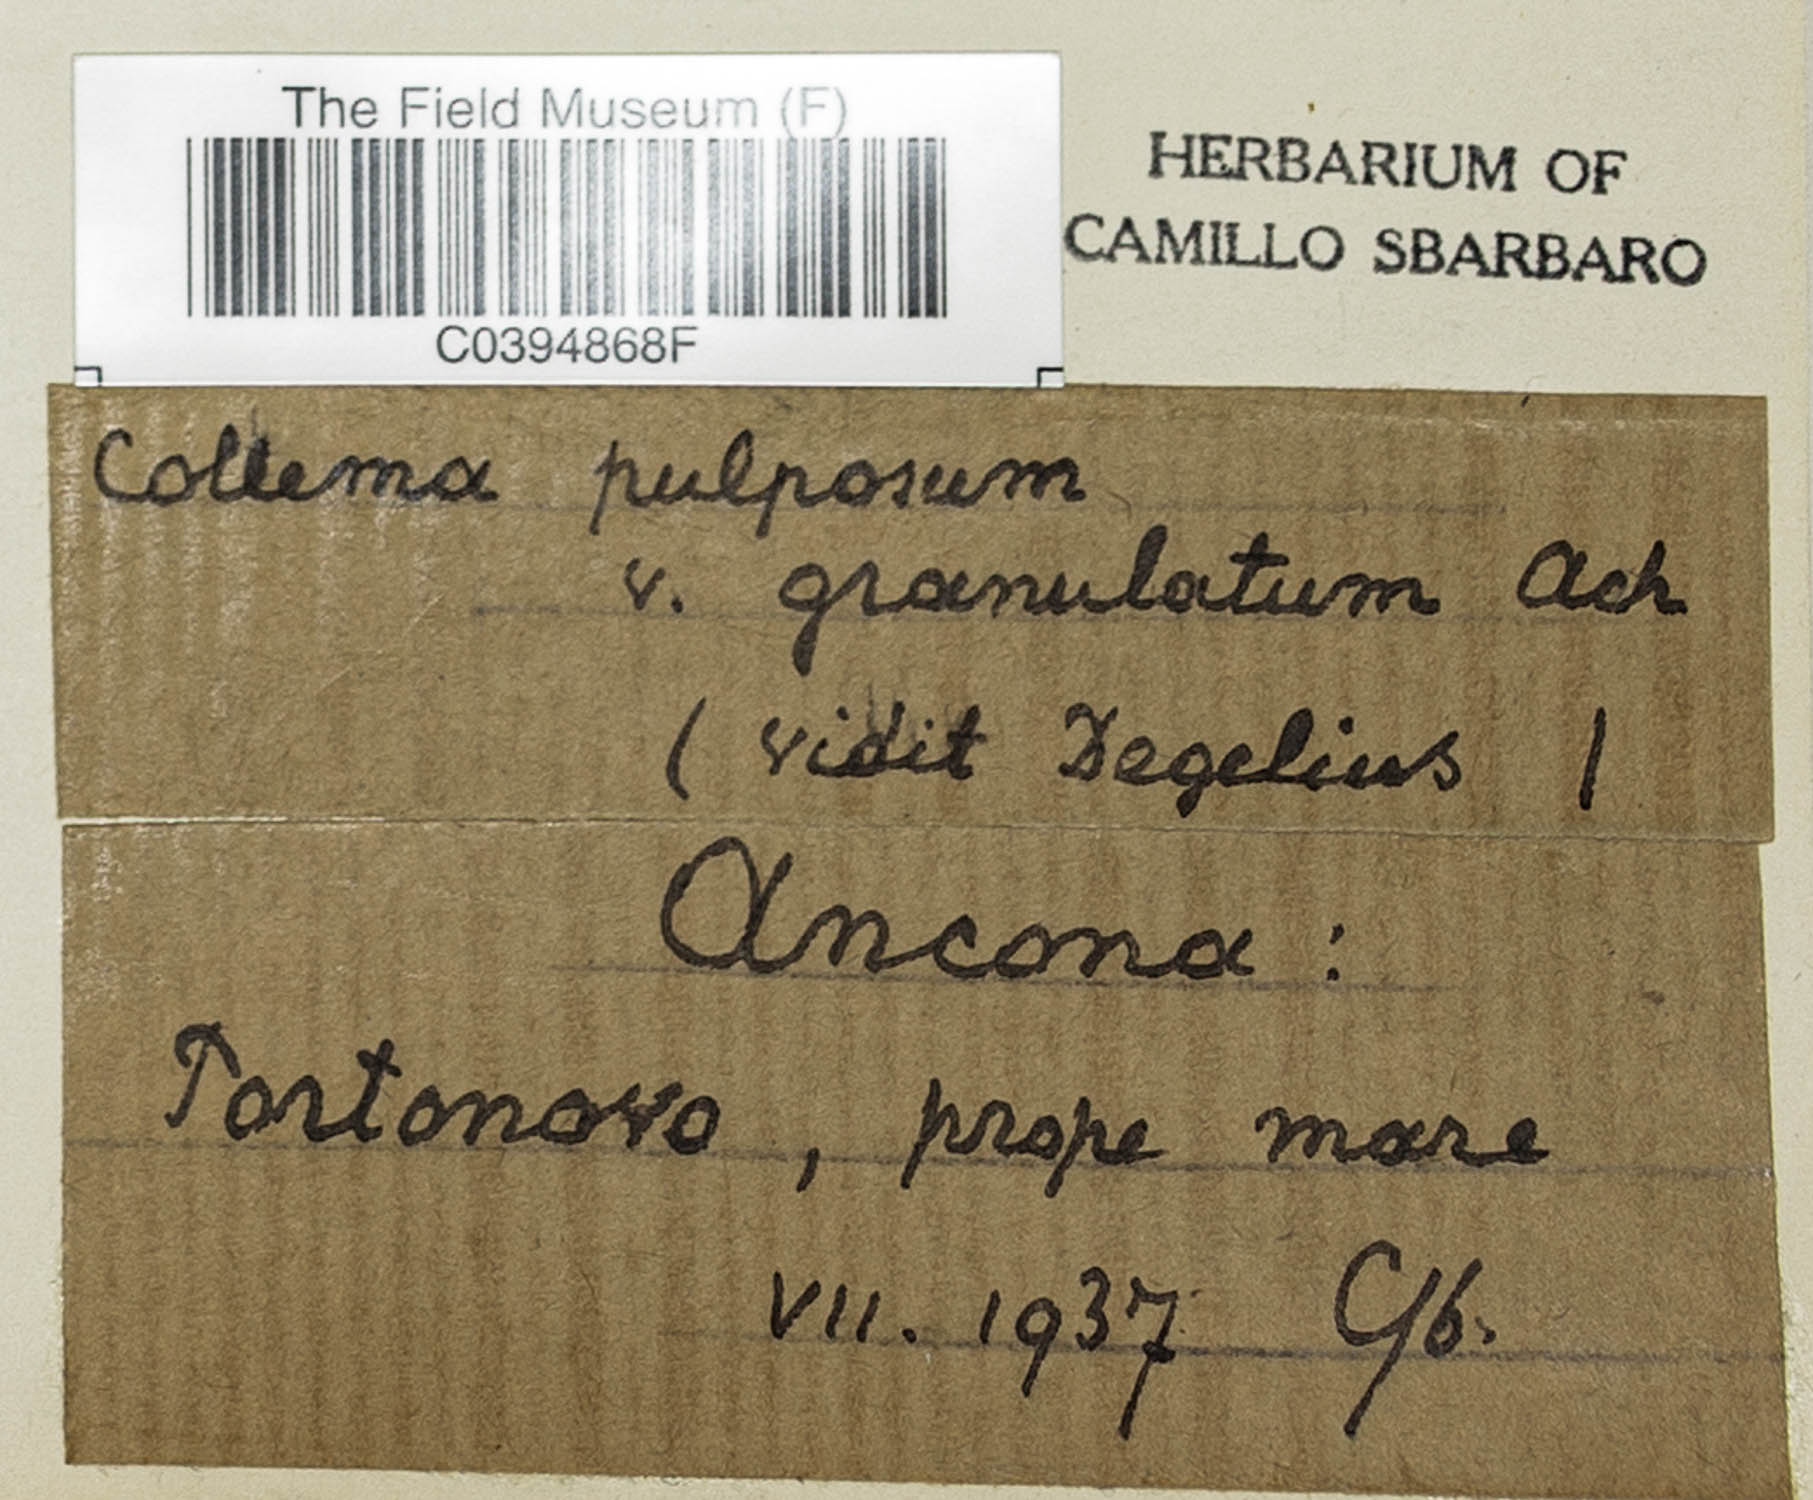 The Field Museum (F)
C0394868F
HERBARIUM OF
CAMILLO SBARBARO
Collema pulposum
v. granulatum Ach
( vidit Degelius )
Ancona :
Portonovo , prope mare
VII. 1937